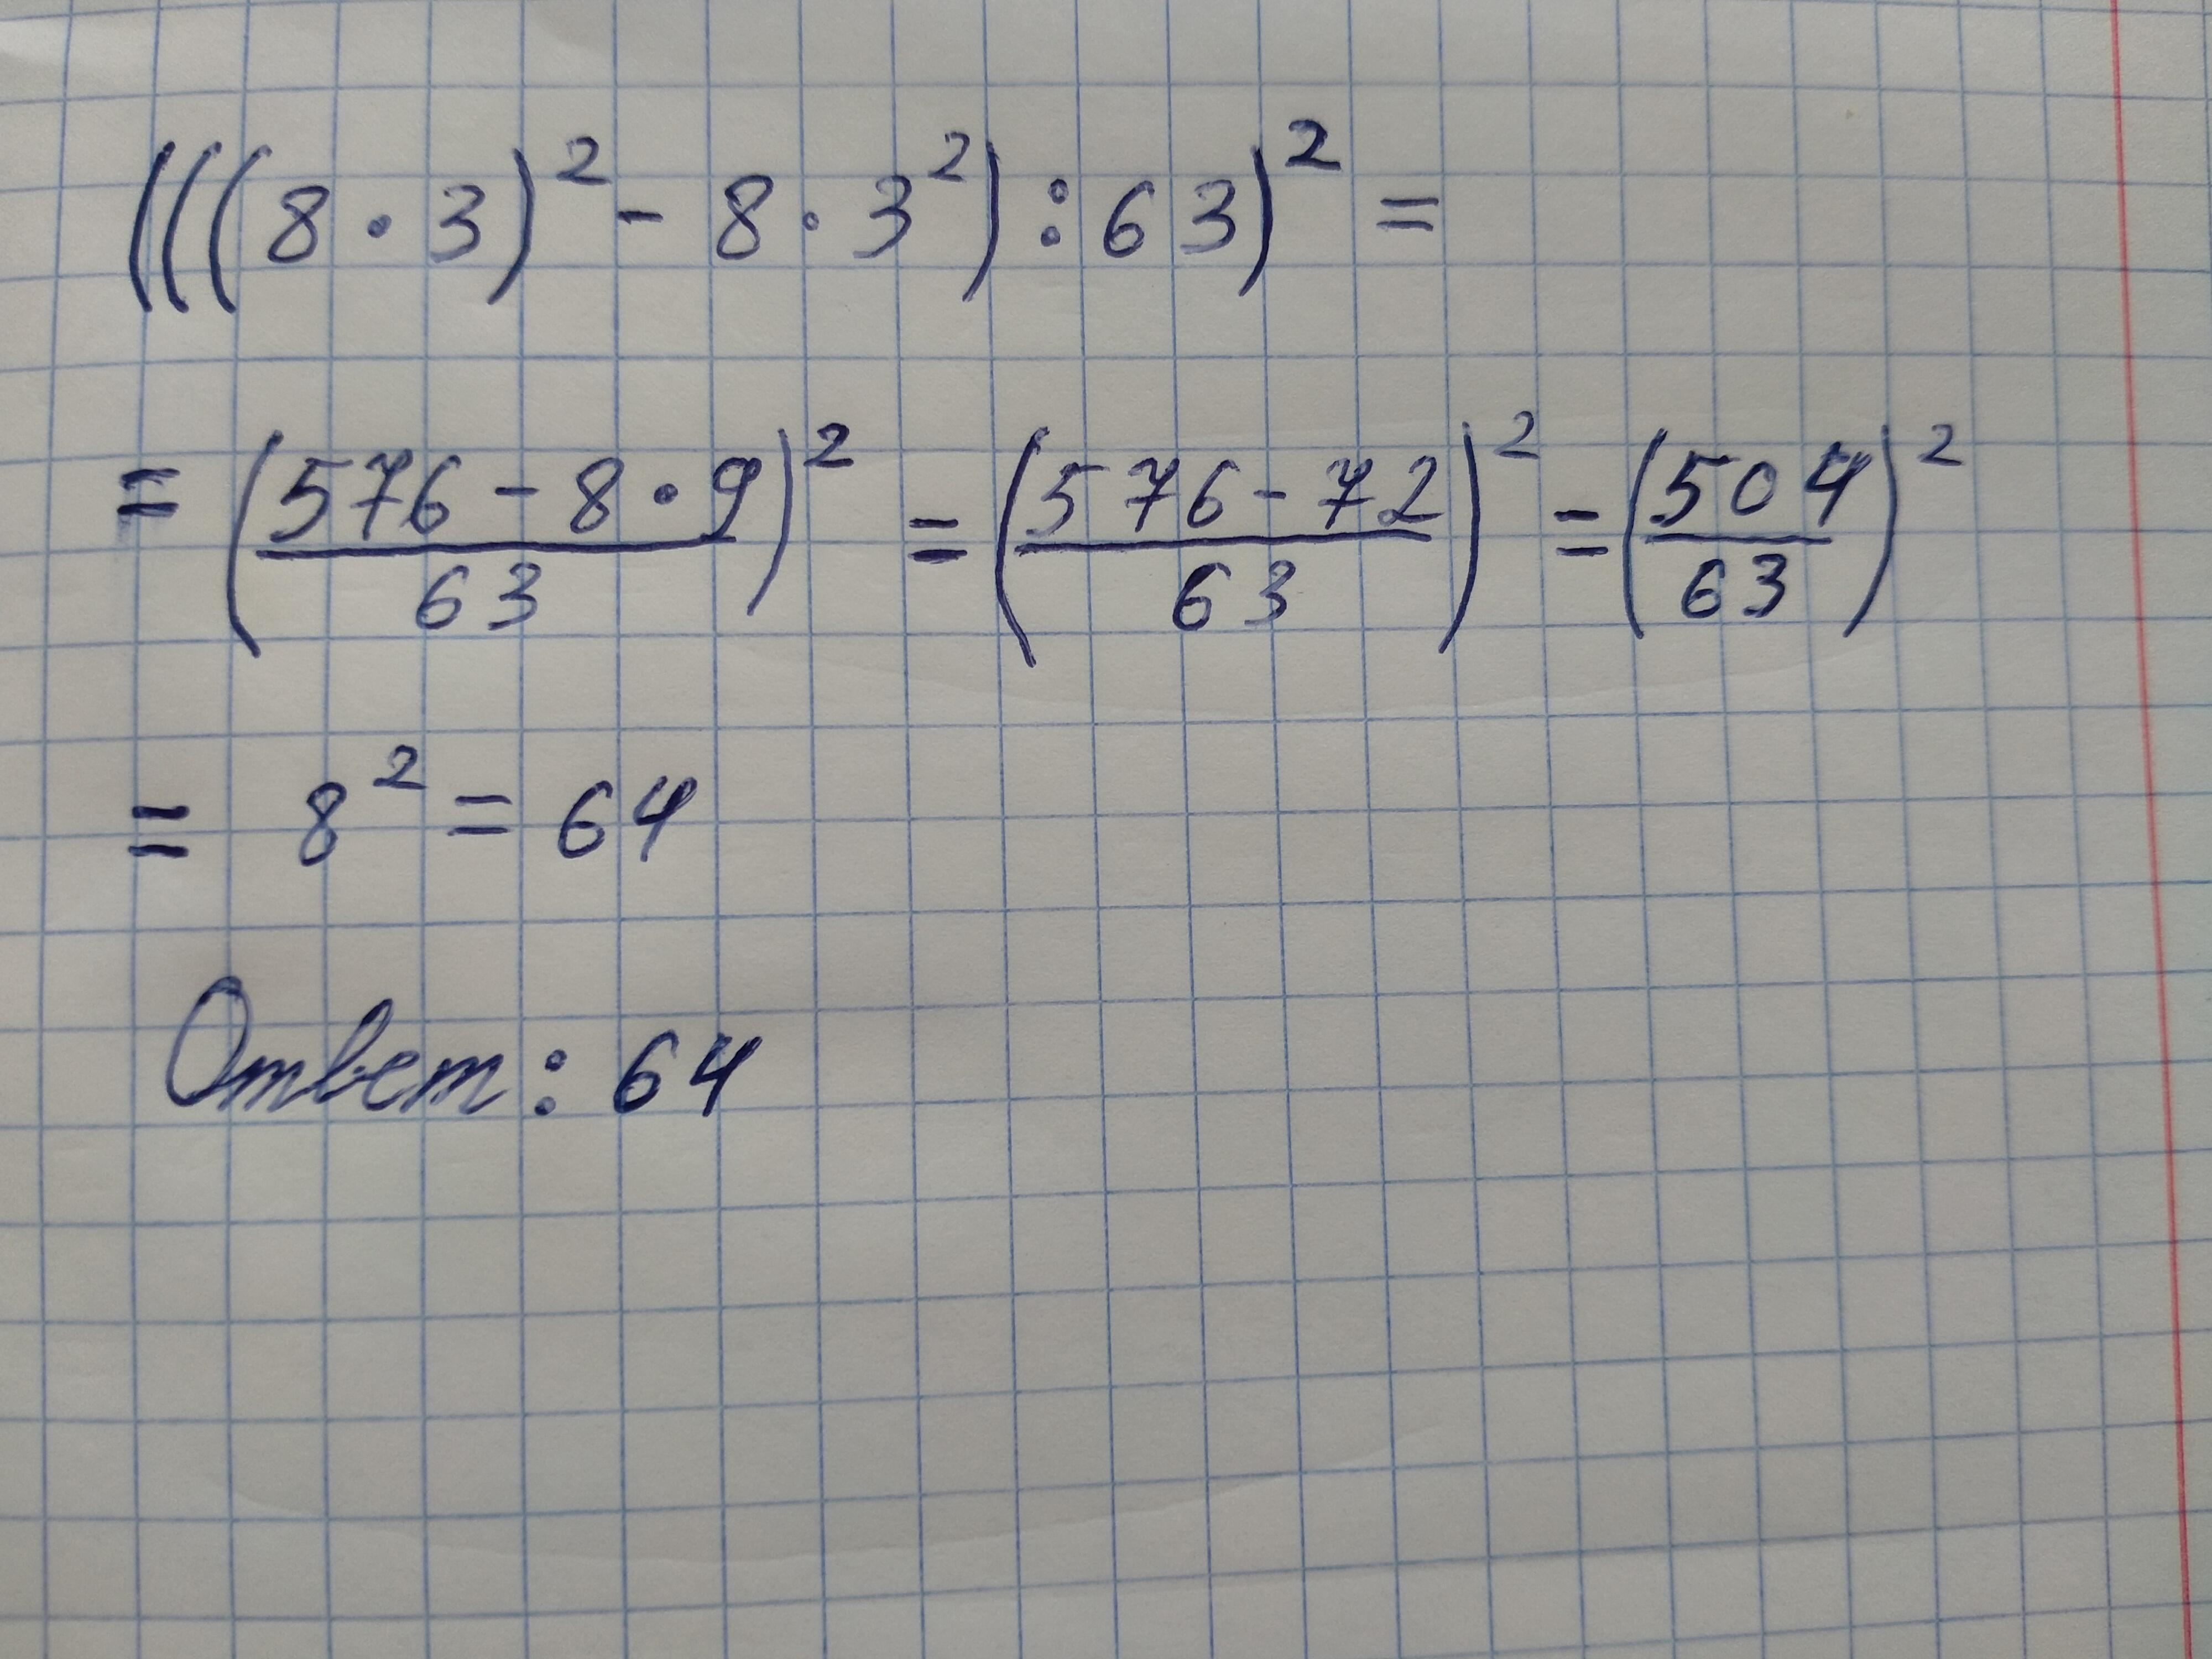 (((8·3)²-8·3²):63)²=
=((576-8·9)/63)²=((576-72)/63)²=(504/63)²
= 8²=64
Ответ: 64